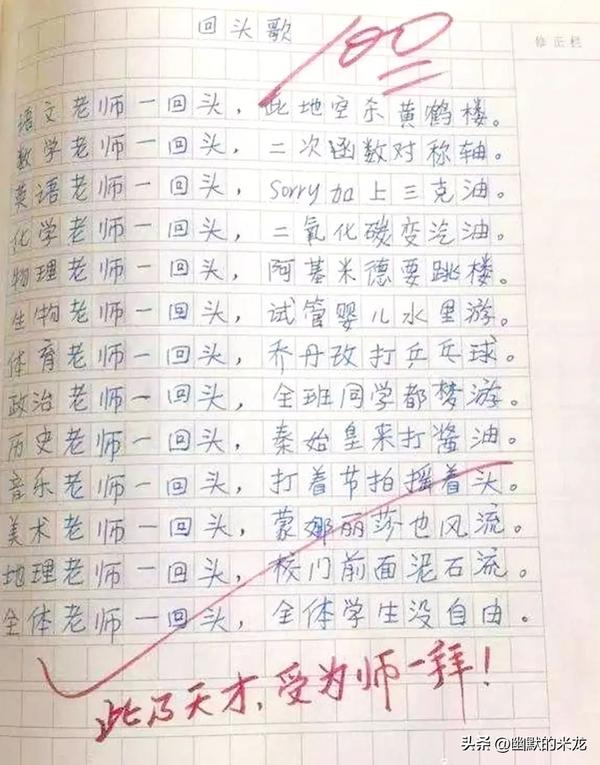 回头歌
100
修正栏
语文老师一回头，此地空余黄鹤楼。
数学老师一回头，二次函数对称轴。
英语老师一回头，sorry加上三克油。
化学老师一回头，二氧化碳变汽油。
物理老师一回头，阿基米德要跳楼。
生物老师一回头，试管婴儿水里游。
体育老师一回头，乔丹改打乒乓球。
政治老师一回头，全班同学都梦游。
历史老师一回头，秦始皇来打酱油。
音乐老师一回头，打着节拍摇着头。
美术老师一回头，蒙娜丽莎也风流。
地理老师一回头，校门前面泥石流。
全体老师一回头，全体学生没自由。
此乃天才，受为师一拜！
头条 @幽默的米龙